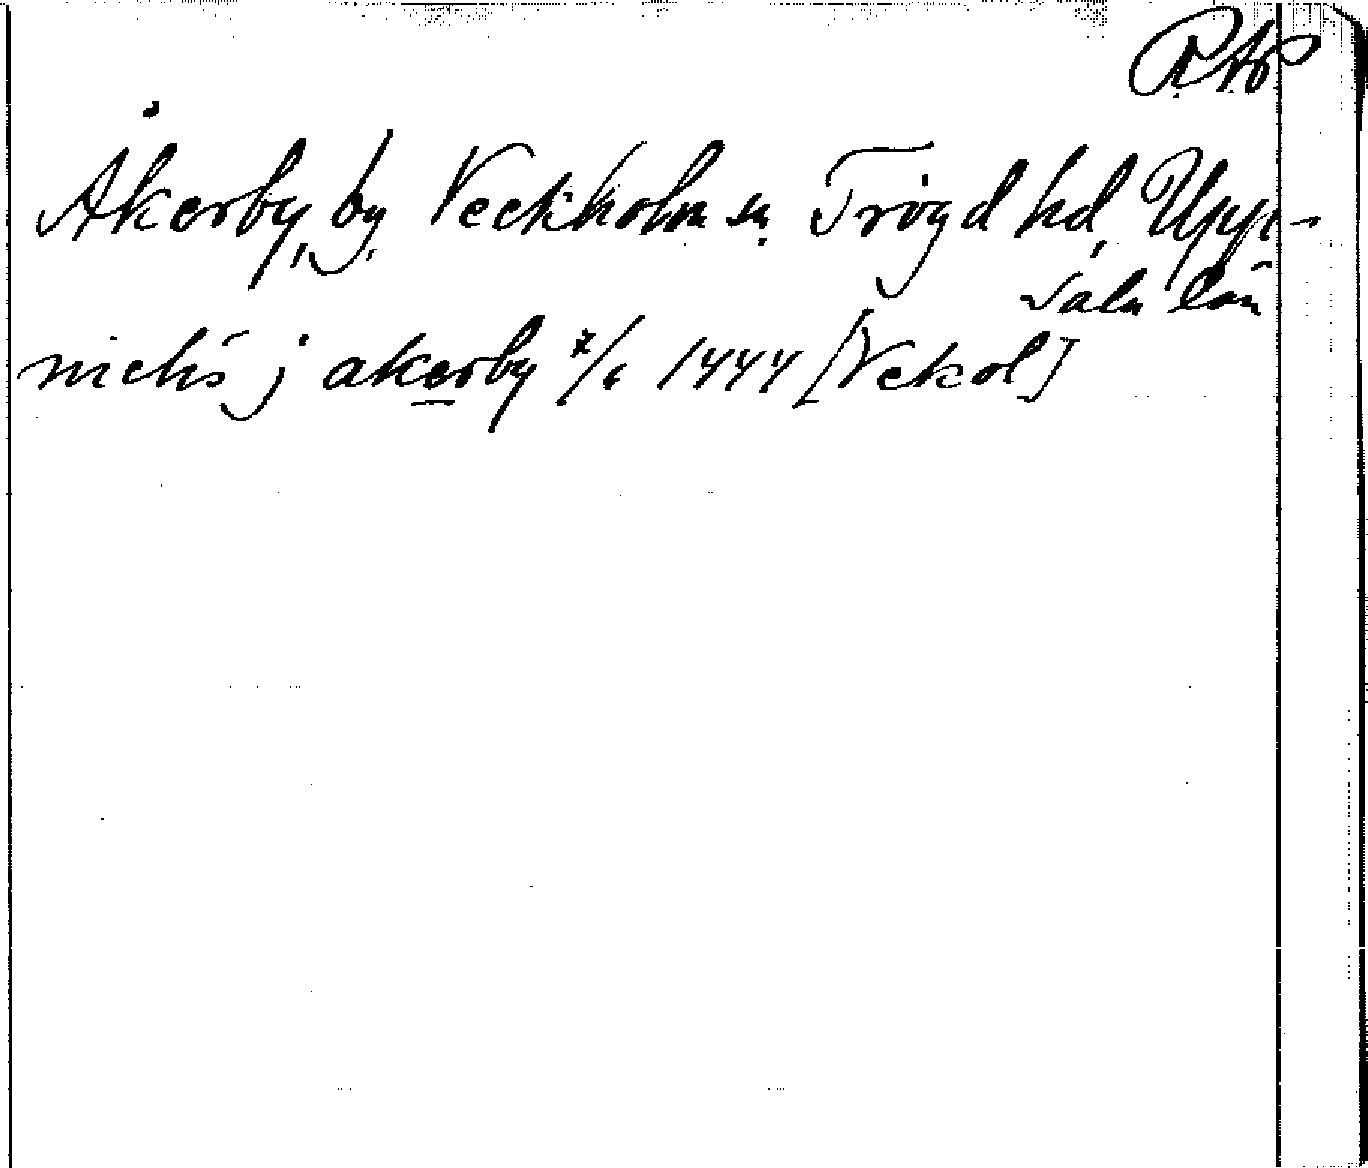 RAp
Åkerby, by, Veckholm sn. Tröyd hd, Upp-
sala län
niclis j akerby 7/6 1444 [Vekol]